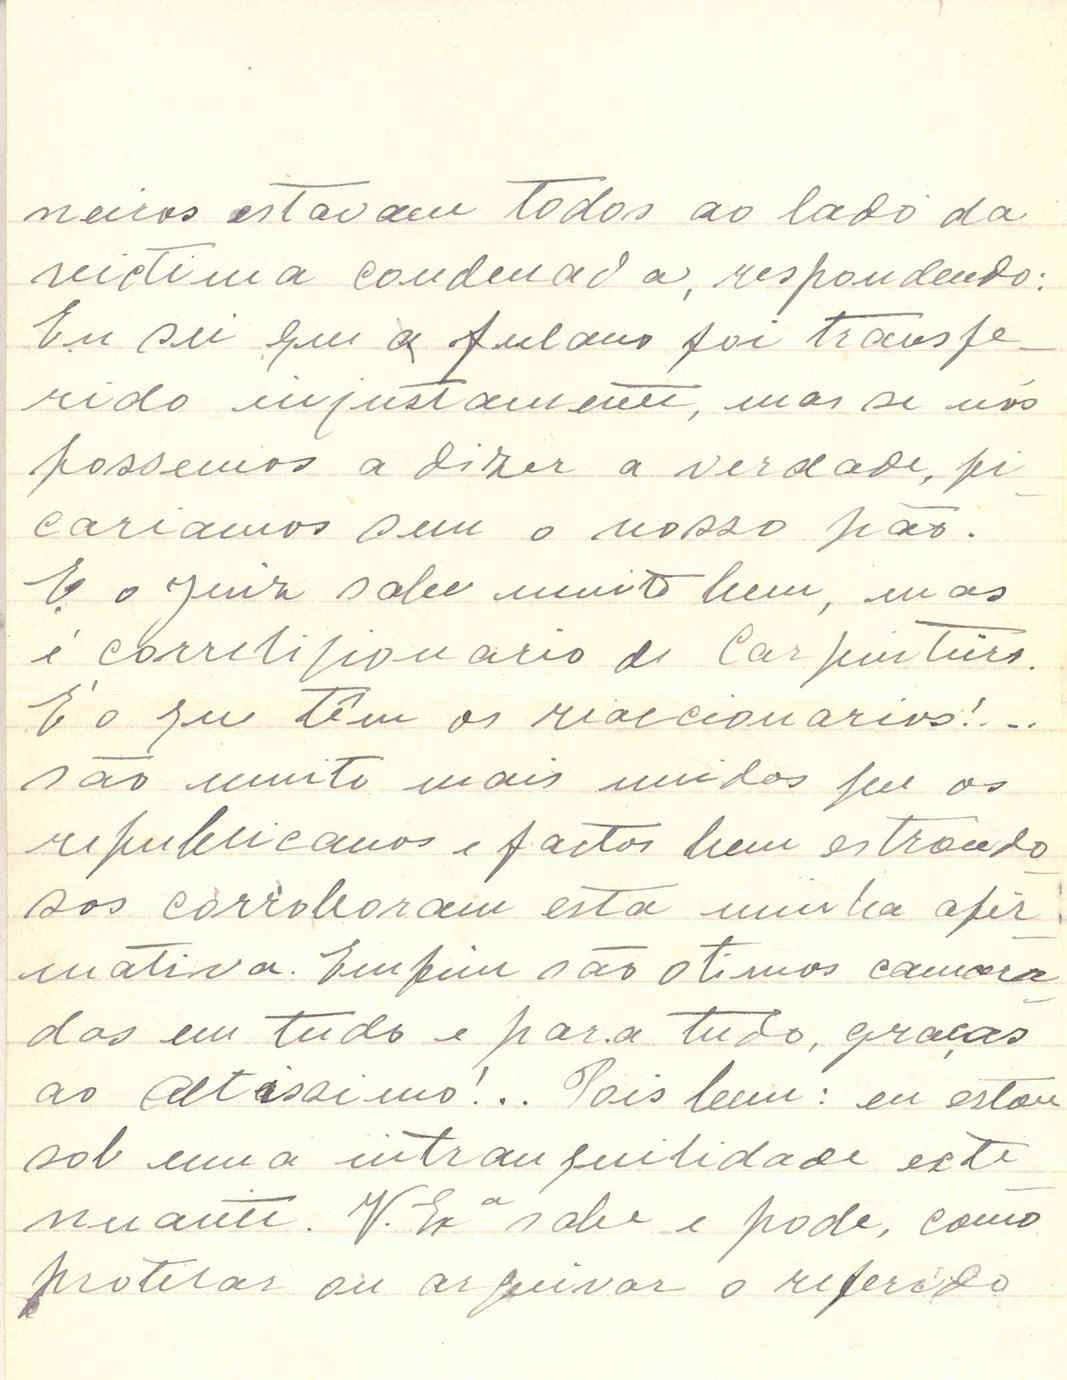 neiros estavam todos ao lado da
victima condenada, respondendo:
Eu sei que a fulano foi transfe-
rido injustamente, mas se nós
fossemos a dizer a verdade, fi
cariamos sem o nosso pão.
E o Juiz sabe muito bem, mas
é correligionario de Carpinteiro.
É o que têm os reaccionarios!...
são muito mais unidos que os
republicanos e factos bem estrondo
sos corroboram esta minha afir
mativa. Emfim são otimos camara
das em tudo e para tudo, graças
ao Altissimo!.. Pois bem: eu estou
sob uma intranquilidade exte
nuante. V. Exª sabe e pode, como
protelar ou arquivar o referido